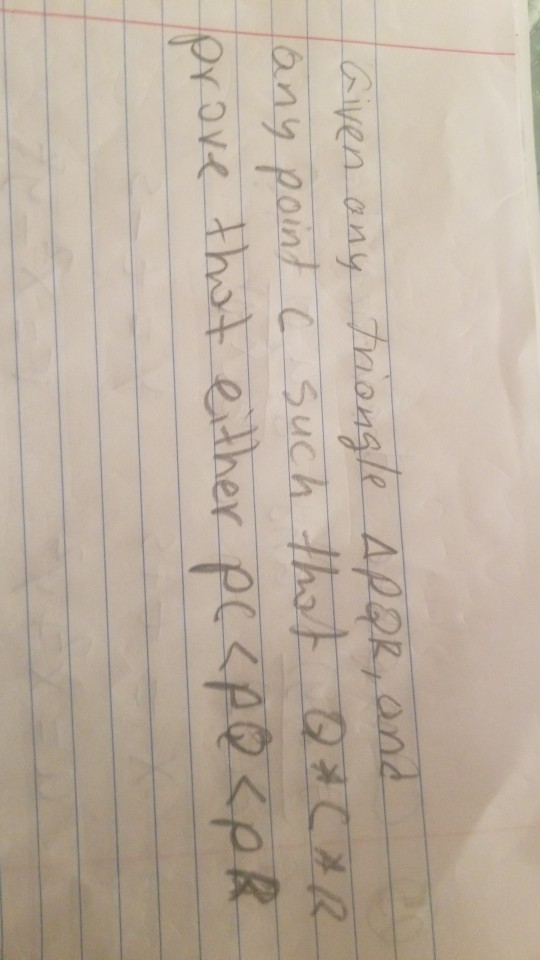 Given any triangle ΔPQR, and
any point C such that Q*C*R
prove that either pC<pQ<pR